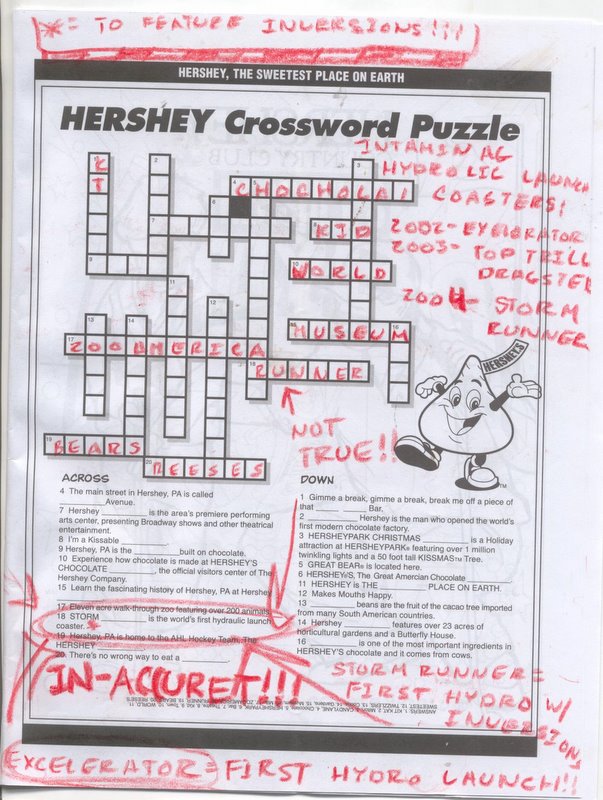 * = TO FEATURE INVERSIONS!!!
HERSHEY, THE SWEETEST PLACE ON EARTH
HERSHEY Crossword Puzzle
INTAMIN AG
HYDROLIC LAUNCH
COASTERS;
2003- TOP TRILL
DRAGSTER
2004- STORM
RUNNER
KT
CHOCHOLAT
KID
WORLD
MUSEUM
ZOOAMERICA
RUNNER
BEARS
REESES
HERSHEY'S
NOT
TRUE!!
ACROSS
4 The main street in Hershey, PA is called
Avenue.
7 Hershey is the area's premiere performing
arts center, presenting Broadway shows and other theatrical
entertainment.
8 I'm a Kissable
9 Hershey, PA is the built on chocolate.
10 Experience how chocolate is made at HERSHEY'S
CHOCOLATE , the official visitors center of The
Hershey Company.
15 Learn the fascinating history of Hershey, PA at Hershey
17 Eleven acre walk-through zoo featuring over 200 animals
18 STORM is the world's first hydraulic launch
coaster. *
19 Hershey, PA is home to the AHL Hockey Team, The
HERSHEY
20 There's no wrong way to eat a
DOWN
1 Gimme a break, gimme a break, break me off a piece of
that Bar.
2 Hershey is the man who opened the world's
first modern chocolate factory.
3 HERSHEYPARK CHRISTMAS is a Holiday
attraction at HERSHEYPARK® featuring over 1 million
twinkling lights and a 50 foot tall KISSMAS™ Tree.
5 GREAT BEAR® is located here.
6 HERSHEY'S, The Great Amercian Chocolate
11 HERSHEY is THE PLACE ON EARTH.
12 Makes Mouths Happy.
13 beans are the fruit of the cacao tree imported
from many South American countries.
14 Hershey features over 23 acres of
horticultural gardens and a Butterfly House.
16 is one of the most important ingredients in
HERSHEY'S chocolate and it comes from cows.
IN-ACCURET!!!
STORM RUNNER=
FIRST HYDRO W/
INVERSION
EXCELERATOR= FIRST HYDRO LAUNCH!!